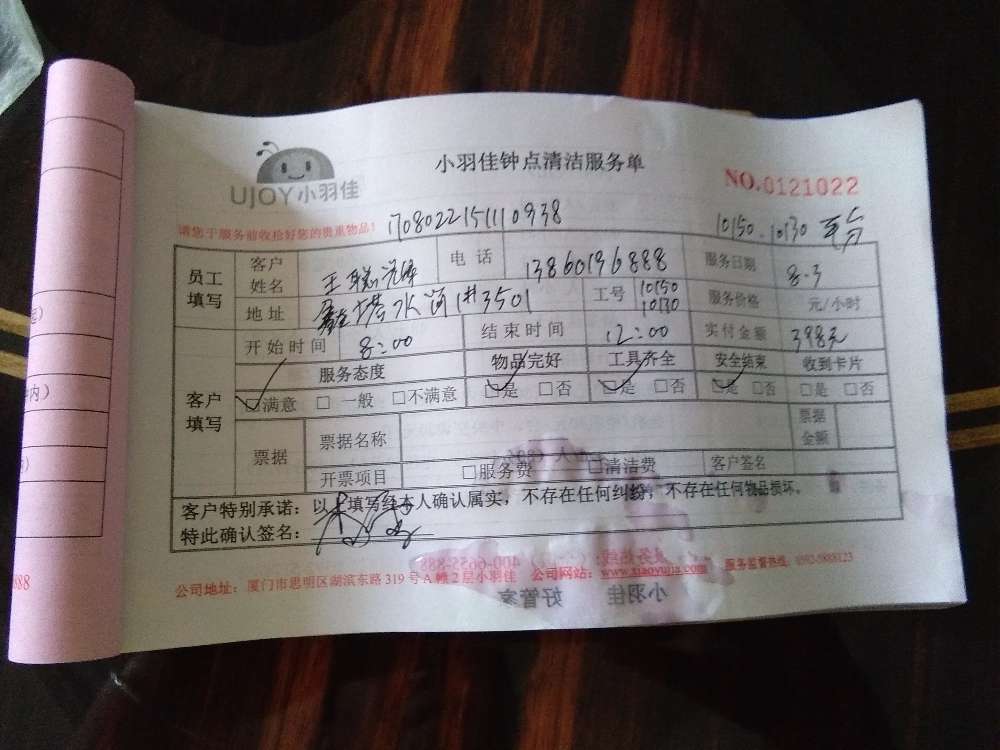 小羽佳钟点清洁服务单
UJOY小羽佳
NO.0121022
请您于服务前收拾好您的贵重物品!
1708022151110938
10150.10130
员工填写
客户姓名
王聪
电话
13860196888
服务日期
8.3
地址
鑫塔水 1#3501
工号
10150
10130
服务价格
元/小时
开始时间
8:00
结束时间
12:00
实付金额
398元
客户填写
服务态度
物品完好
工具齐全
安全结束
收到卡片
☑满意 □一般 □不满意
☑是 □否
☑是 □否
☑是 □否
□是 □否
票据
票据名称
票据金额
开票项目
□服务费 □清洁费
客户签名
客户特别承诺:以上填写经本人确认属实,不存在任何纠纷,不存在任何物品损坏。
特此确认签名:
公司地址:厦门市思明区湖滨东路319号A幢2层小羽佳 公司网站:www.xiaoyujia.com 服务监督热线:0592-5888123
小羽佳 好管家
400-6655-888
888